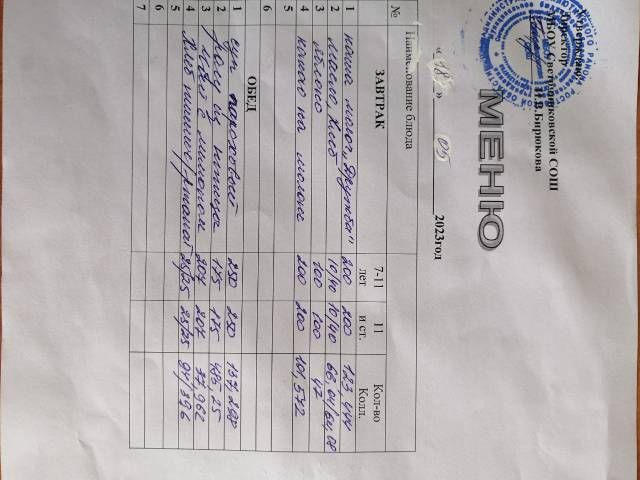 Утверждаю
Директор
МБОУ Светочниковской СОШ
Н.В.Бирюкова
МЕНЮ
« 18 » 05 2023год
№ Наименование блюда 7-11 лет 11 и ст. Кол-во Колл.
ЗАВТРАК
1 каша молоч „Дружба" 200 200 123,444
2 масло, хлеб 10/40 10/40 66,04/64,08
3 яблоко 100 100 47
4 какао на молоке 200 200 101,572
5
6
ОБЕД
1 суп гороховый 250 250
2 рагу из птицы 175 175 485,25
3 чай с лимоном 207 207
4 Хлеб пшенич/ржаной 25/25 25/25
5
6
7